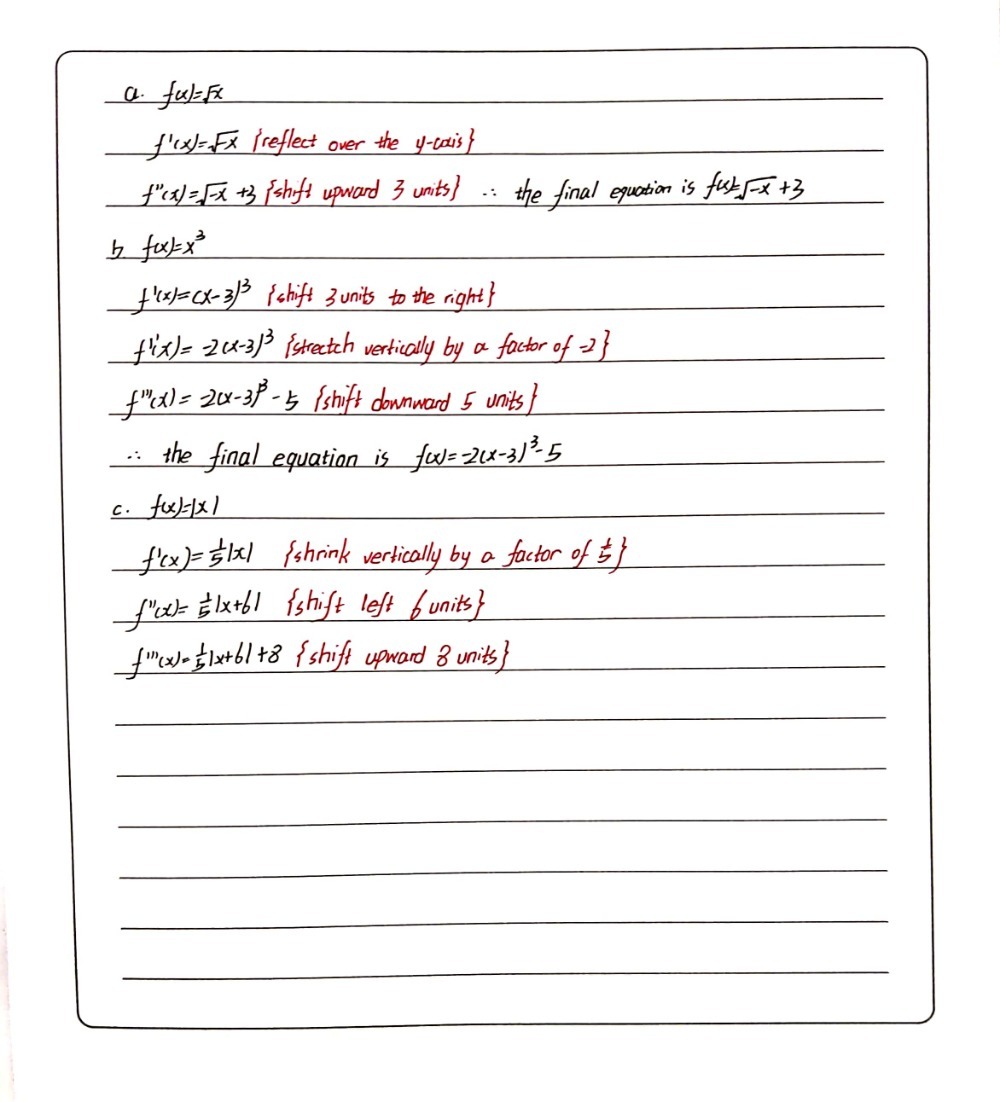 a. f(x)=√x
f'(x)=√-x {reflect over the y-axis}
f"(x)=√-x +3 {shift upward 3 units} ∴ the final equation is f(x)=√-x +3
b f(x)=x³
f'(x)=(x-3)³ {shift 3 units to the right}
f"(x)= -2(x-3)³ {stretch vertically by a factor of -2}
f'''(x)= -2(x-3)³ - 5 {shift downward 5 units}
∴ the final equation is f(x)=-2(x-3)³-5
c. f(x)=|x|
f'(x)=⅕|x| {shrink vertically by a factor of ⅕}
f"(x)= ⅕|x+6| {shift left 6 units}
f'''(x)=⅕|x+6|+8 {shift upward 8 units}